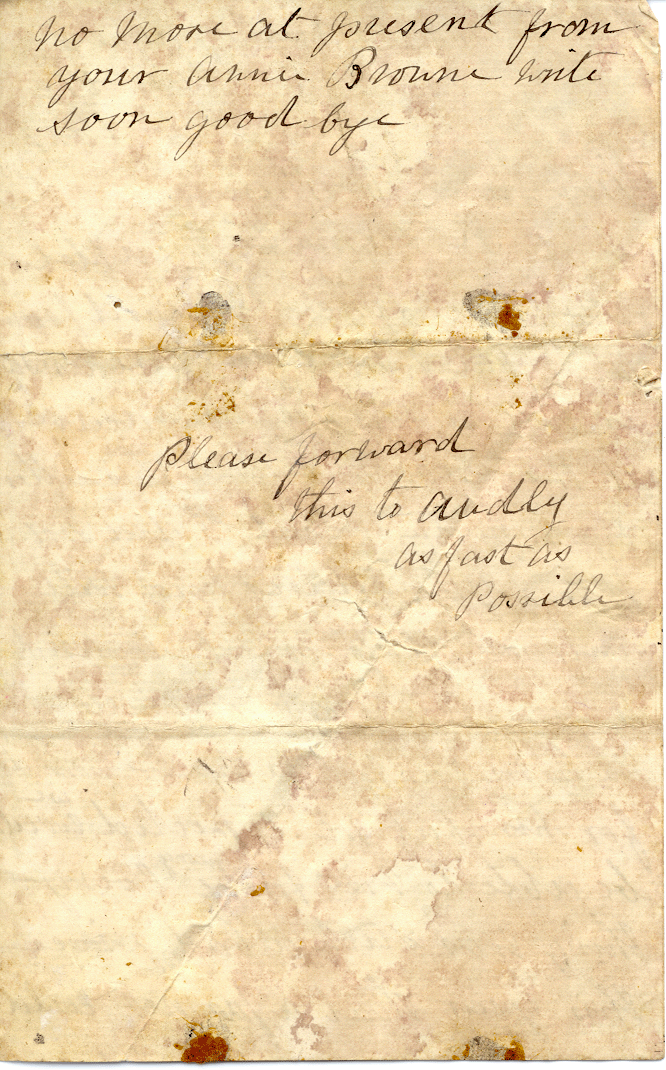 no more at present from
your annie Browne write
soon good bye
Please forward
this to audly
as fast as
Possible